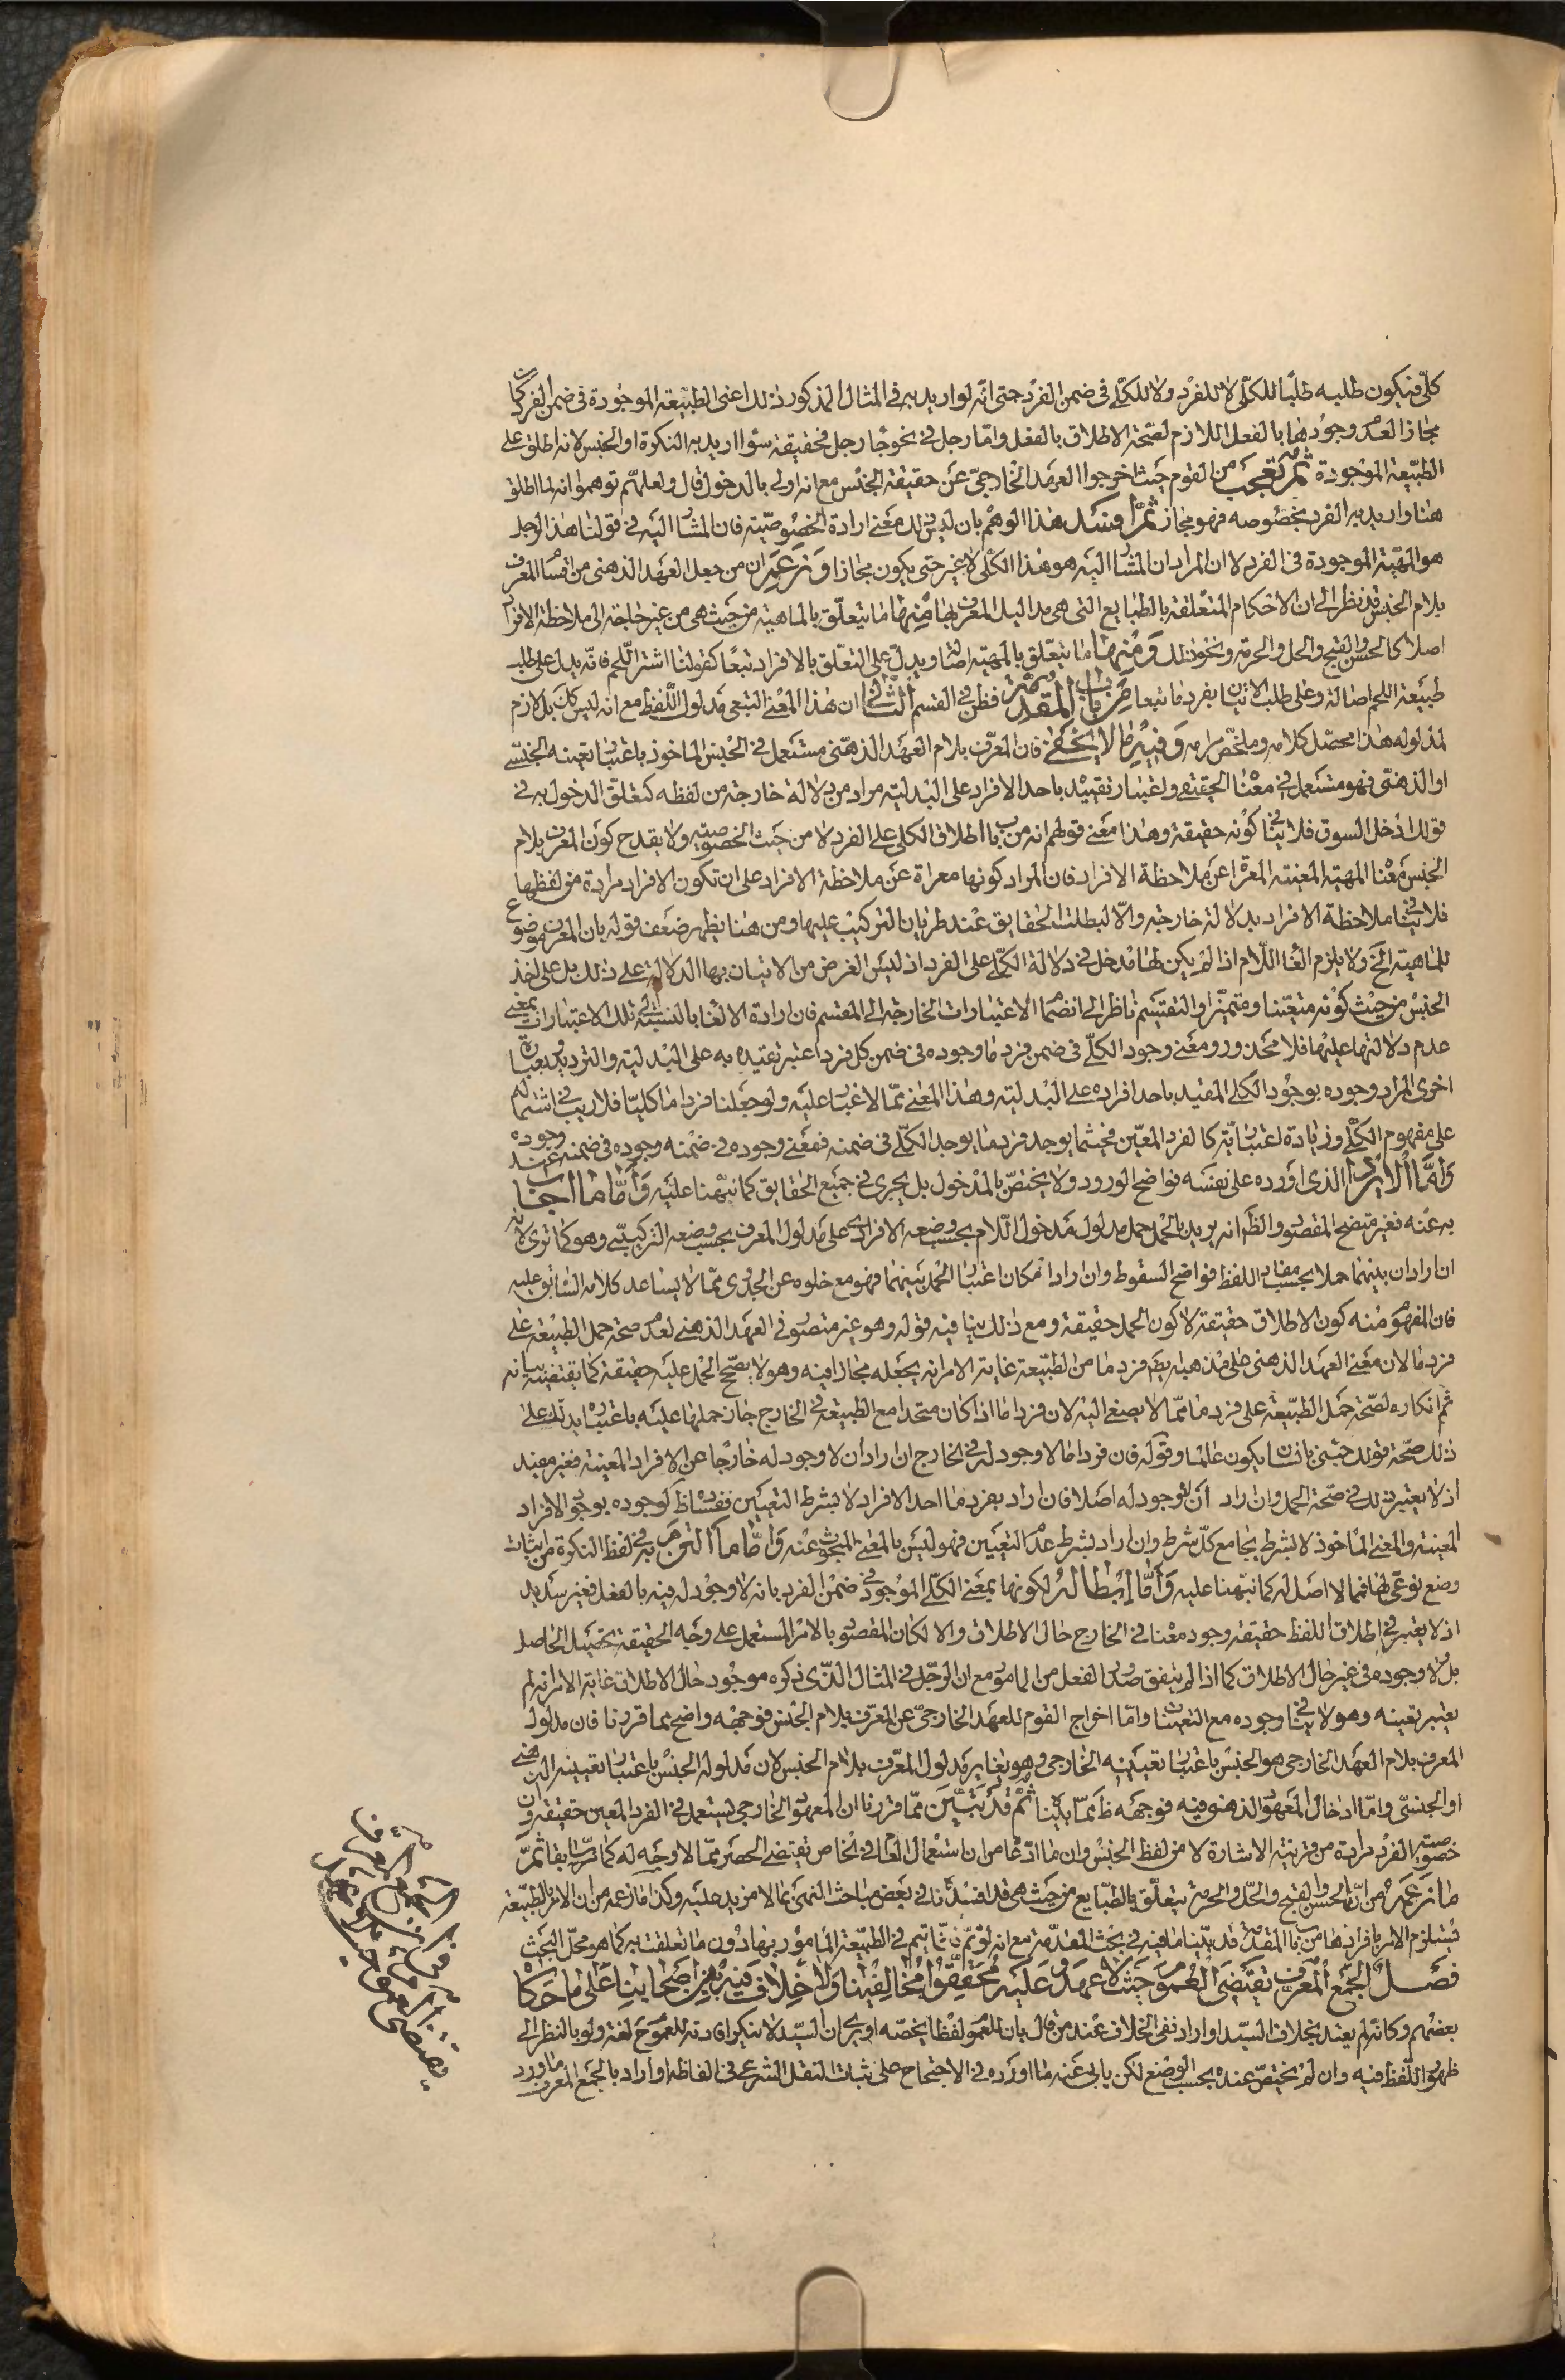 كلّي فيكون طلبه طلبًا للكلّي لا للفرد ولا للكلّي في ضمن الفرد حتى انّه لو اريد به في المثال المذكور ذلك اعنى الطبّيعة الموجودة في ضمن الفرد كان
مجازا لعدم وجودها بالفعل اللازم لصّحة الاطلاق بالفعل وامّا رجل في نحو جاء رجل فحقيقة سواء اريد به النكرة او الجنس لانه اطلق على
الطبّيعة الموجودة ثمّ تعجب من القوم حيث اخرجوا العهد الخارجىّ عن حقيقة الجنس مع انه اولى بالدخول قال ولعلهّم توهموا انه لما اطلق
هنا واريد به الفرد بخصوصه فهو مجاز ثمّ افسد هذا الوهم بان ليس ذلك معنى ارادة الخصوصّية فان المشار اليه في قولنا هذا الرجل
هو المهيّة الموجودة في الفرد لا ان المراد ان المشار اليه هو هذا الكلّي لا غير حتى يكون مجازا وزعم ان من جعل العهد الذهنى من اقسام المعرف
بلام الجنس قد نظر الى ان الاحكام المتعلقة بالطبايع التى هى مداليل المعرف بها منها ما يتعلّق بالماهية من حيث هى من غير حاجة الى ملاحظة الافراد
اصلا كالحسن والقبح والحل والحرمة ونحو ذلك ومنها ما يتعلّق بالمهيّة اصالة ويدلّ على التعلّق بالافراد تبعًا كقولنا اشتر اللّحم فانّه يدل على طلب
طبيعة اللحم اصالة وعلى طلب الاتيان بفرد ما تبعا من باب المقدّمة فظن في القسم الثانى ان هذا المعنى التبعى مدلول اللّفظ مع انه ليس كك بل لازم
لمدلوله هذا محصّل كلامه وملخّص مرامه وفيه ما لا يخفى فان المعرّف بلام العهد الذهنّى مستعمل في الجنس الماخوذ باعتبار تعينه الجنسّى
او الذهنّى فهو مستعمل في معناه الحقيقى واعتبار تقييده باحد الافراد على البدليّة مراد من دلالة خارجة من لفظه كتعلق الدخول به في
قولك ادخل السوق فلا ينافى كونه حقيقة وهذا معنى قولهم انه من باب اطلاق الكلى على الفرد لا من حيث الخصوصيّة ولا يقدح كون المعرف بلام
الجنس معناه المهيّة المعينة المعرّاة عن ملاحظة الافراد فان المراد كونها معراة عن ملاحظة الافراد على ان تكون الافراد مرادة من لفظها
فلا ينافى ملاحظة الافراد بدلالة خارجة والّا لبطلت الحقايق عند طريان التركيب عليها ومن هنا يظهر ضعف قوله بان المعرف موضوع
للماهية الخ ولا يلزم الغاء اللّام اذا لم يكن لها مدخل في دلالة الكلّى على الفرد اذ ليس الغرض من الاتيان بها الدلالة على ذلك بل على اخذ
الجنس من حيث كونه متعيّنا ومتميّزا والتقسيم ناظر الى انضمام الاعتبارات الخارجة الى المقسم فان ارادة الالغاء بالنسبة الى تلك الاعتبارات بمعنى
عدم دلالتها عليها فلا محذور ومعنى وجود الكلّى في ضمن فرد ما وجوده في ضمن كل فرد اعتبر تقييده به على البدلية والترديد وبعبارة
اخرى المراد وجوده بوجود الكلى المقيد باحد افراده على البدليّة وهذا المعنى ممّا لا غبار عليه ولو جعلنا فردا ما كليّا فلا ريب في اشتماله
على مفهوم الكلّى وزيادة اعتبارية كالفرد المعّين فحيثما يوجد فرد ما يوجد الكلّى في ضمنه فمعنى وجوده في ضمنه وجوده في ضمنه عند وجوده
وامّا الايراد الذى اورده على نفسه فواضح الورود ولا يختصّ بالمدخول بل يجرى في جميع الحقايق كما نبّهنا عليه وامّا ما اجاب
به عنه فغير متضح المقصود والظّ انه يريد بالحمل حمل مدلول مدخول اللّام بحسب وضعه الافرادى على مدلول المعرف بحسب وضعه التركيبّى وهو كما ترى لانه
ان اراد ان بينهما حملا بحسب مفاد اللفظ فواضح السقوط وان اراد امكان اعتبار الحمل بينهما فهو مع خلوه عن الجدوى ممّا لا يساعد كلامه السّابق عليه
فان المفهوم منه كون الاطلاق حقيقة لا كون الحمل حقيقة ومع ذلك ينافيه قوله وهو غير متصور في العهد الذهنى لعدم صحة حمل الطبيعة على
فرد ما لان معنى العهد الذهنى على مذهبه يضم فرد ما من الطبّيعة غاية الامر انه يجعله مجازا فيه وهو لا يصّحح الحمل عليه حقيقة كما يقتضيه بيانه
ثم انكاره لصّحة حمل الطبّيعة على فرد ما ممّا لا يصغى اليه لان فردا ما اذا كان متحدا مع الطبيعة في الخارج جاز حملها عليه باعتباره يدلّك على
ذلك صحّة قولك جئنى بانسان يكون عالما وقوله فان فردا ما لا وجود له في الخارج ان اراد ان لا وجود له خارجا عن الافراد المعينة فغير مفيد
اذ لا يعتبر ذلك في صحّة الحمل وان اراد ان لا وجود له اصلا فان اراد بفرد ما احد الافراد لا بشرط التعيين ففساده ظ لوجوده بوجود الافراد
المعينة والمعنى الماخوذ لا بشرط يجامع كلّ شرط وان اراد بشرط عدم التعيين فهو ليس بالمعنى المبحوث عنه وامّا ما التزم به في لفظ النكرة من اثبات
وضع نوعّى لها فمما لا اصل له كما نبّهنا عليه وامّا ابطاله لكونها بمعنى الكلّى الموجود في ضمن الفرد بانه لا وجود له فيه بالفعل فغير سديد
اذ لا يعتبر في اطلاق اللفظ حقيقة وجود معناه في الخارج حال الاطلاق والا لكان المقصود بالامر المستعمل على وجه الحقيقة تحصيل الحاصل
بل لا وجوده في غير حال الاطلاق كما اذا لم يتفق صدور الفعل من المامور مع ان الرجل في المثال الذّى ذكره موجود حال الاطلاق غاية الامر انه لم
يعتبر تعينه وهو لا ينافى وجوده مع التعينات وامّا اخراج القوم للعهد الخارجىّ عن المعرّف بلام الجنس فوجهه واضح مما قررنا فان مدلول
المعرف بلام العهد الخارجى هو الجنس باعتبار تعيينه الخارجى وهو يغاير مدلول المعرّف بلام الجنس لان مدلوله الجنس باعتبار تعيينه الذهنى
او الجنسّى وامّا ادخال المعهود الذهنى فيه فوجهه ظ ممّا بيّنا ثمّ قد تبّين ممّا قررنا ان المعهود الخارجى يستعمل في الفرد المعين حقيقة وان
خصوصيّة الفرد مرادة من قرينة الاشارة لا من لفظ الجنس وان ما ادّعاه من ان استعمال العام في الخاص يقتضى الحصر ممّا لا وجه له كما مرّ سابقا ثمّ
ما زعمه من انّ الحسن والقبح والحلّ والحرمة يتعلّق بالطبّايع من حيث هى قد افسدنا في بعض مباحث النهى بما لا مزيد عليه وكذا ما زعمه من ان الامر بالطبّيعة
يستلزم الامر بافرادها من باب المقدمة قد بيّنا ما فيه في بحث المقدّمة مع انه لو تمّ فانّما يتم في الطبّيعة المامور بها دون ما تعلقت به كما هو محلّ البحث
فصل الجمع المعرّف يقتضى العموم حيث لا عهد وعليه محقّقوا مخالفينا ولا خلاف فيه بين اصحابنا على ما حكاه
بعضهم وكانّه لم يعتد بخلاف السيّد او اراد نفى الخلاف عند من قال بان للعموم لفظا يخصّه او يرى ان السيّد لا ينكر افادته للعموم لغة ولو بالنظر الى
ظهور اللّفظ فيه وان لم يختصّ عنده بحسب الوضع لكن يابى عنه ما اورده في الاحتجاج على ثبات النقل الشرعى في الفاظه او اراد بالجمع المعرف ما ورد